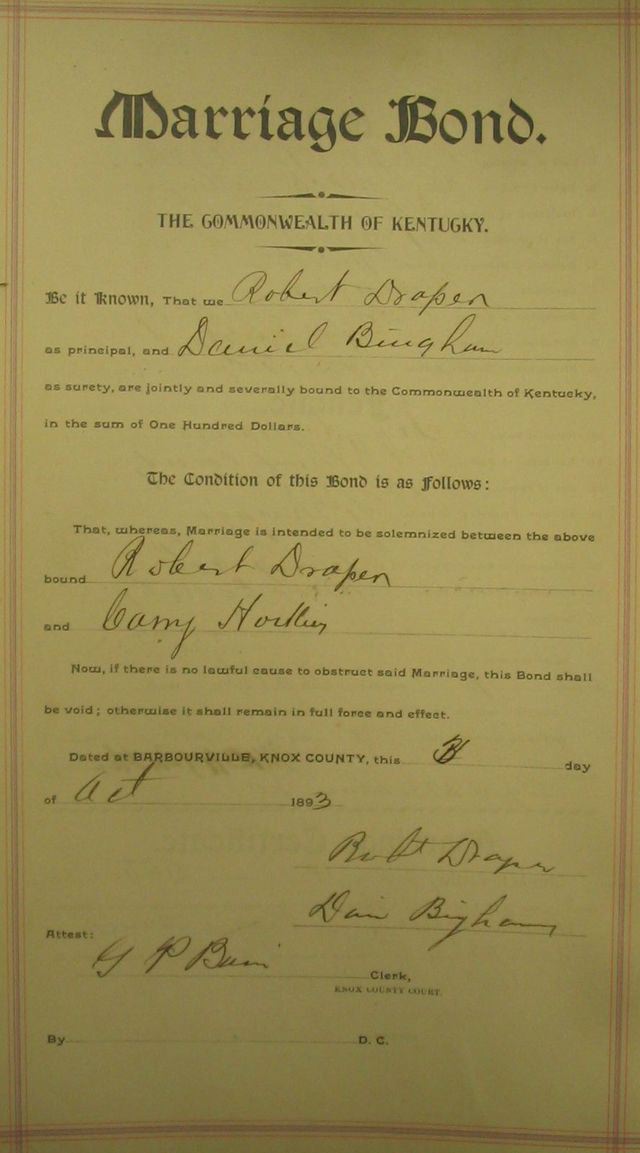 Marriage Bond.
THE COMMONWEALTH OF KENTUCKY.
Be it Known, That we Robert Draper
as principal, and Daniel Bingham
as surety, are jointly and severally bound to the Commonwealth of Kentucky,
in the sum of One Hundred Dollars.
The Condition of this Bond is as Follows:
That, whereas, Marriage is intended to be solemnized between the above
bound Robert Draper
and
Now, if there is no lawful cause to obstruct said Marriage, this Bond shall
be void; otherwise it shall remain in full force and effect.
Dated at BARBOURVILLE, KNOX COUNTY, this day
of Oct 1893
Robt Draper
Dan Bigham
Attest:
G P Bain Clerk,
KNOX COUNTY COURT.
By D. C.